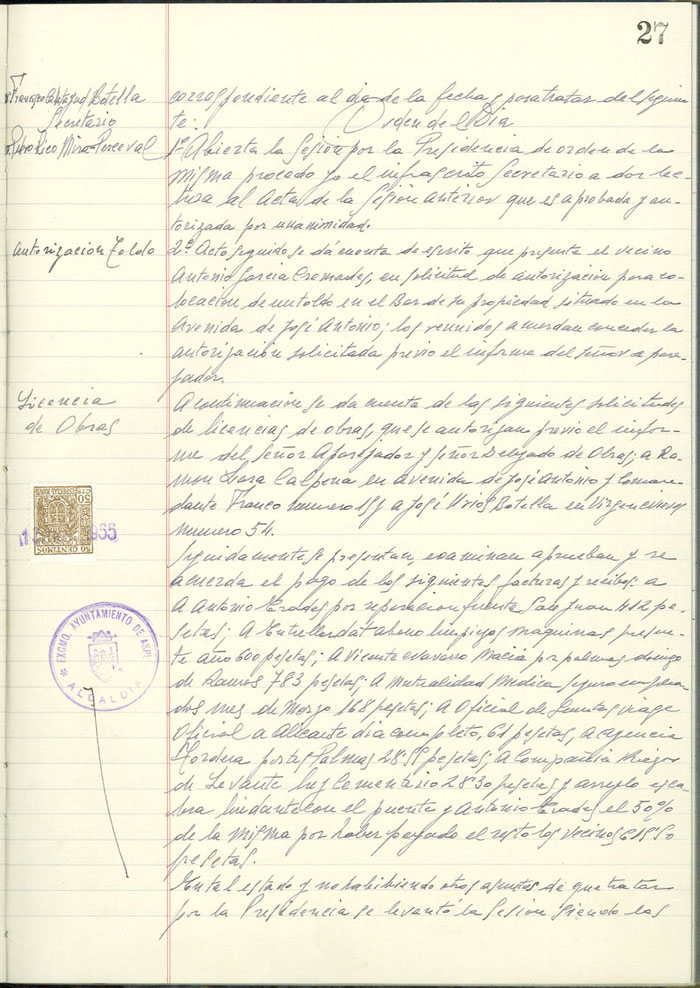 27
Francisco Calatayud Botella
Secretario
Pedro Rico Mira-Perceval
correspondiente al dia de la fecha y para tratar del siguien
te: Orden del Dia
1º Abierta la Sesión por la Presidencia de orden de la
misma procedo yo el infrascrito Secretario a dar lec-
tura al Acta de la Sesión anterior que es aprobada y au-
torizada por unanimidad.
Autorización Toldo
2º Acto seguido se dá cuenta de escrito que presenta el vecino
Antonio Garcia Cremades, en solicitud de autorización para co-
locación de un toldo en el Bar de su propiedad situado en la
Avenida de José Antonio; los reunidos acuerdan conceder la
autorización solicitada previo el informe del Señor apare-
jador.
Licencia
de Obras
A continuación se da cuenta de las siguientes solicitudes
de licencias de obras, que se autorizan previo el infor-
me del Señor Aparejador y Señor Delegado de Obras; a Ra-
mon Lara Calpena en avenida de José Antonio y Coman-
dante Franco numero a José Urios Botella en
numero 54.
Seguidamente se presentan, examinan aprueban y se
acuerda el pago de las siguientes facturas y recibos: a
A Antonio Erades por reparacion fuente San Juan 412 pe-
setas; A abono limpieza maquinas presen-
te año 600 pesetas; A Vicente Navarro Maciá por palmas domingo
de Ramos 783 pesetas; A Mutualidad Medica seguro emplea-
dos mes de Marzo 168 pesetas; A Oficial de viaje
Oficial a Alicante dia completo, 61 pesetas, a agencia
portes Palmas pesetas; A Compañia Riegos
de Levante luz Cementerio pesetas y arreglo
lindante con el puente y Antonio Erades el 50%
de la misma por haber pagado el resto los vecinos
pesetas.
En tal estado y no habibiendo otros asuntos de que tratar
por la Presidencia se levantó la Sesión siendo las
50 CENTIMOS
1955
EXCMO. AYUNTAMIENTO DE ASPE
ALCALDIA